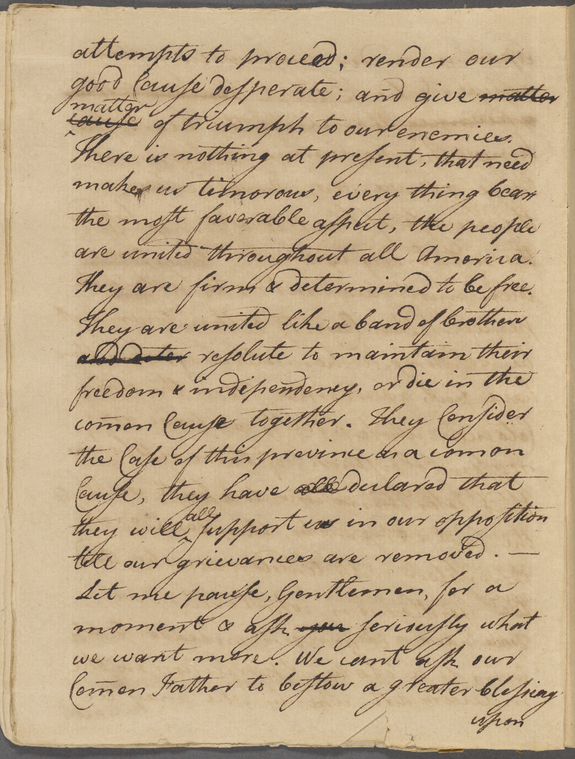 attempts to proceed; render our
good Cause desperate; and give matter
matter
cause of triumph to our enemies.
There is nothing at present, that need
make us timorous, every thing bears
the most favorable aspect, the people
are united throughout all America.
They are firm & determined to be free.
They are united like a band of brothers
resolute to maintain their
freedom & independency, or die in the
comon Cause together. They Consider
the Case of this province as a comon
Cause, they have all declared that
all
they will support us in our opposition
till our grievances are removed. —
Let me pause, Gentlemen, for a
moment & ask you seriously what
we want more. We cant ask our
Comon Father to bestow a greater blessing
upon